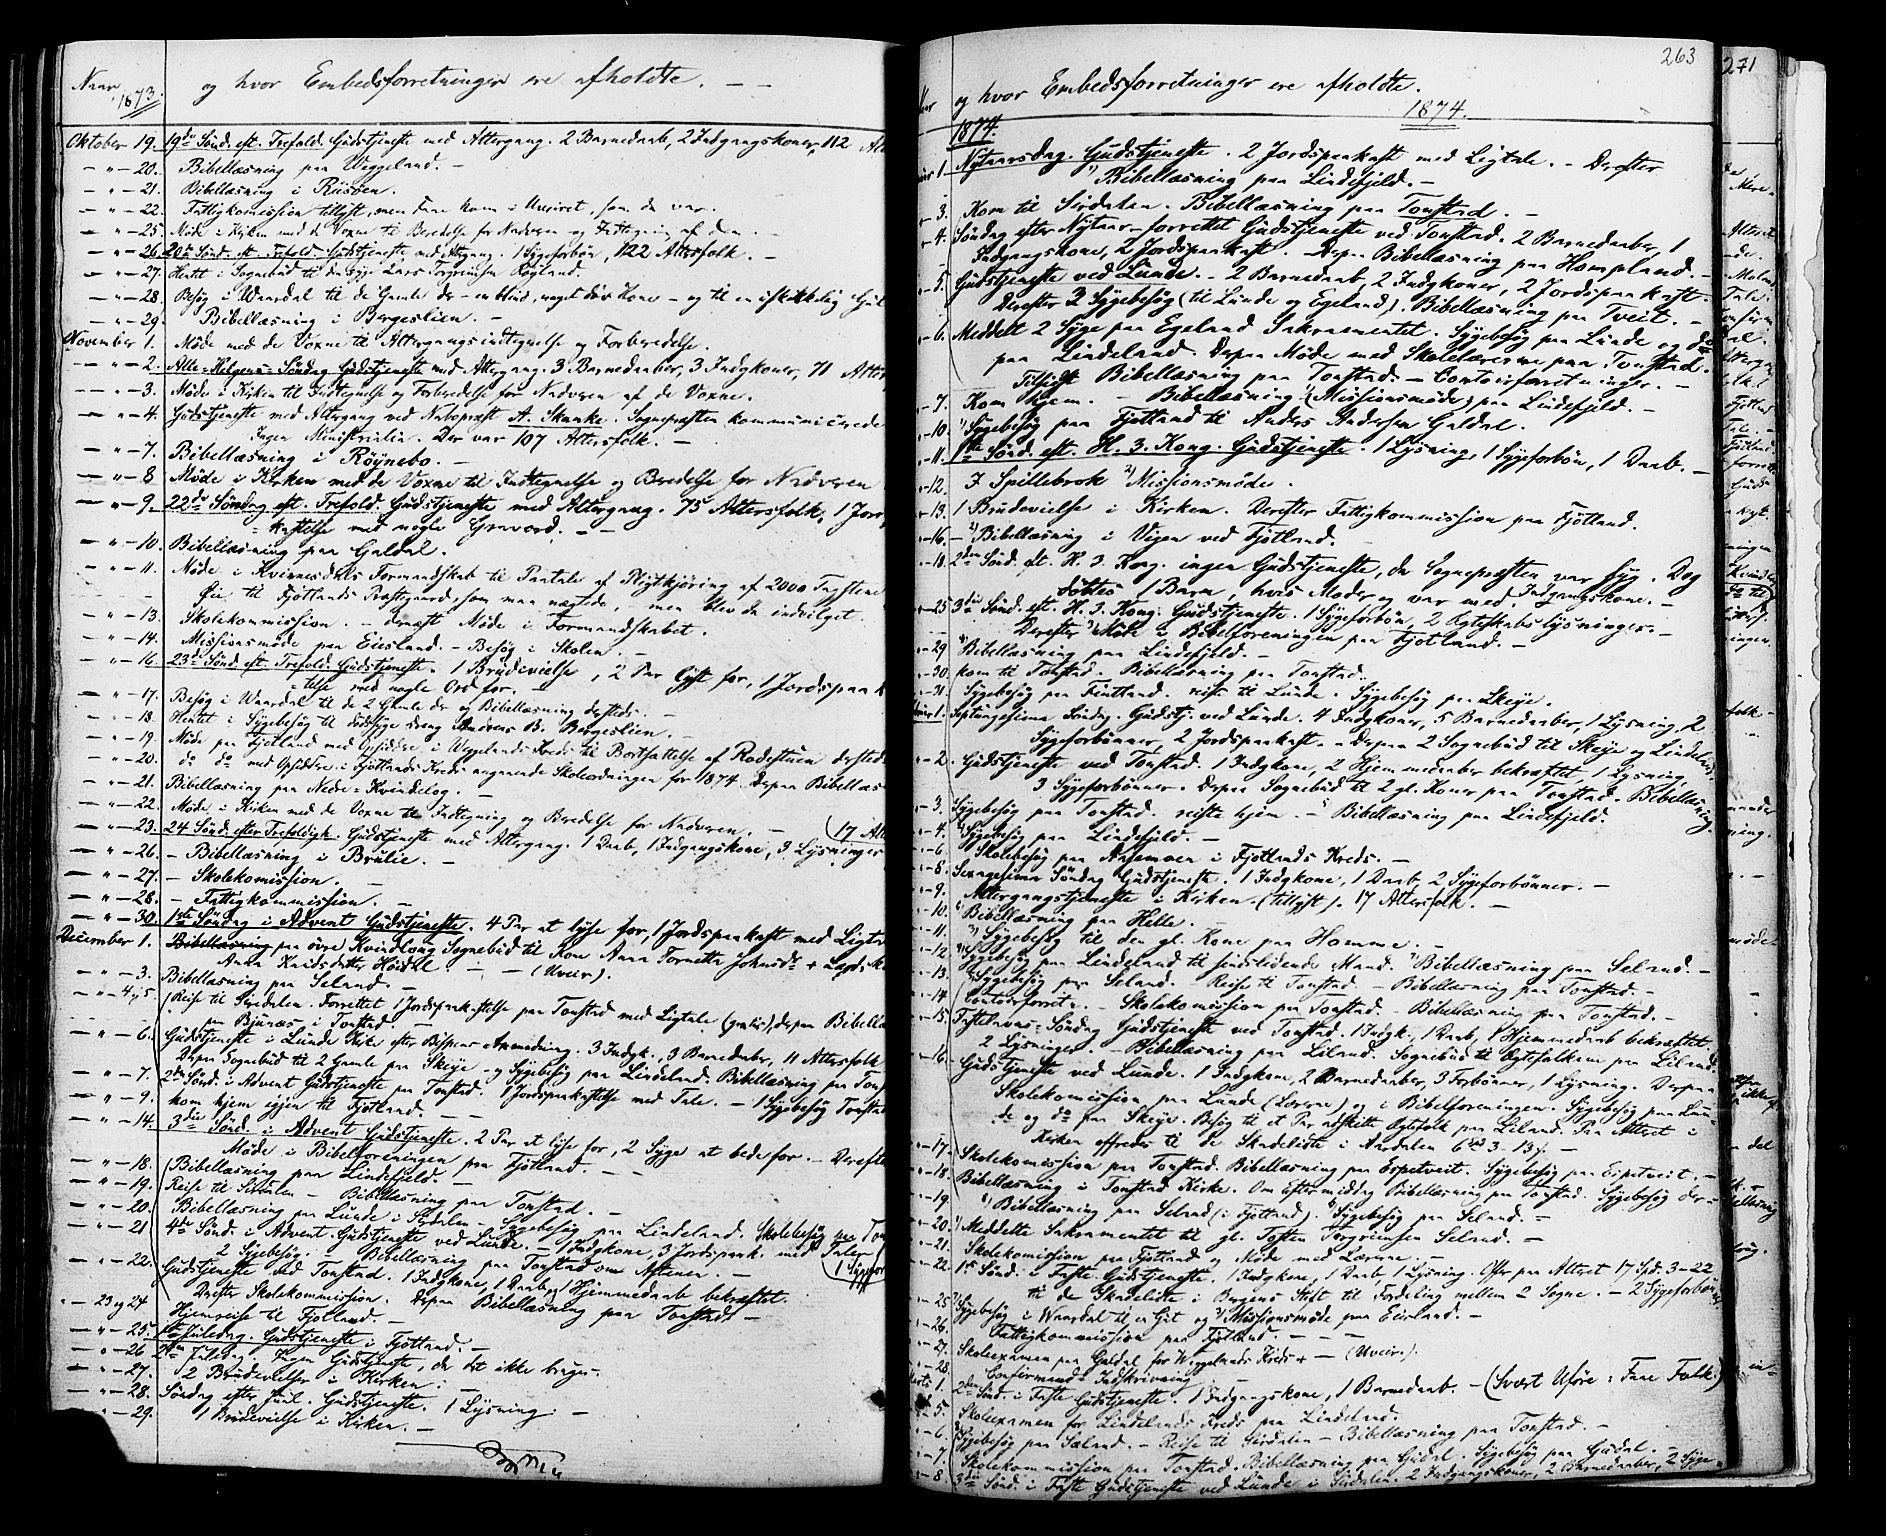 Naar og hvor Embedsforretninger ere afholdte. — —
1873.
Oktober 19. 19de Sönd. eft. Trefold. Gudstjeneste med Altergang. 2 Barnedaab, 2 Indgangskoner, 112
— " — 20. Bibellæsning paa Veggeland. —
— " — 21. Bibellæsning i Risöen. —
— " — 22. Fattigkomission tillyst, men Faa kom i Uveiret, som da var.
— " — 25. Möde i Kirken med de Voxne til Beredelse for Nadveren og Indtegning af dem. —
— " — 26. 20de Sönd. eft. Trefold. Gudstjeneste med Altergang. 1 Sygeforbön, 122 Altersfolk. —
— " — 27. Hentet i Sognebud til den syge Lars Torgrimsen Røgland.
— " — 28. Besög i Waardal til de Gamle der — en blind, meget döv Kone — og til en
— " — 29. Bibellæsning i Bergeslien. —
November 1. Möde med de Voxne til Altergangsindtegnelse og Forberedelse.
— " — 2. Alle-Helgens-Söndag Gudstjeneste med Altergang. 3 Barnedaaber, 3 Indgkoner, 71
— " — 3. Möde i Kirken til Indtegnelse og Forberedelse for Nadveren af de Voxne.
— " — 4. Gudstjeneste med Altergang ved Nabopræst A. Skanke. Sognepræsten kommunicerede
Ingen Ministerialia. Der var 107 Altersfolk. —
— " — 7. Bibellæsning i Röynebo. —
— " — 8. Möde i Kirken med de Voxne til Indtegnelse og Beredelse for Nadveren
— " — 9. 22de Söndag eft. Trefold. Gudstjeneste med Altergang. 75 Altersfolk, 1 Jords-
kastelse med nogle Gravord. —
— " — 10. Bibellæsning paa Galdal.
— " — 11. Möde i Kvinesdals Formandskab til Paatale af Pligtkjöring af 2000 Tagstene
Öie til Fjotlands Præstegaard, som man nægtede, — men blev da indvilget.
— " — 13. Skolekommission. — dernæst Möde i Formandskabet.
— " — 14. Missionsmöde paa Eiesland. — Besög i Skolen. —
— " — 16. 23de Sönd. eft. Trefold. Gudstjeneste. 1 Brudevielse, 2 Par lyst for, 1 Jordspaak
telse med nogle Ord for. —
— " — 17. Besög i Waardal til de 2 Gamle der og Bibellæsning dersteds. —
— " — 18. Hentet i Sygebesög til dödssyge Dreng Andreas B. Bergeslien. —
— " — 19. Möde paa Fjotland med Opsiddere i Veggelands Kreds til Bortsættelse af Rodestuen
— " — 20. do do med Opsiddere i Fjotlands Kreds angaaende Skoleordningen for 1874. Derpaa Bibellæs
— " — 21. Bibellæsning paa Nede-Kvindlog. —
— " — 22. Möde i Kirken med de Voxne til Indtegning og Beredelse for Nadveren. —
— " — 23. 24 Sönd. efter Trefoldigh. Gudstjeneste med Altergang. 1 Daab, 1 Indgangskone, 3 Lysninger (17 Alt
— " — 26. — Bibellæsning i Brulie. —
— " — 27. — Skolekomission. —
— " — 28. — Fattigkommission. —
— " — 30. 1ste Söndag i Advent Gudstjeneste. 4 Par at lyse for, 1 Jordspaakast med Ligta
December 1. Bibellæsning paa övre Kvindlog Sognebud til Kone Anna Tornetta Johnsdr +
Anna Knudsdatter — (Uveir).
— " — 3. Bibellæsning paa Seland. —
— " — 4 & 5. Reise til Siredalen. Forrettet 1 Jordspaakastelse paa Tonstad med Ligtale (gratis), derpaa Bibellæ
paa Bjunes i Tonstad.
— " — 6. Gudstjeneste i Lunde Kirke efter Bispens Anmodning. 3 Indgk., 3 Barnedaaber, 11 Altersfolk.
Derpaa Sognebud til 2 Gamle paa Skeije — og Sygebesög paa Lindeland. Bibellæsning paa Ton
— " — 7. 2den Sönd. i Advent Gudstjeneste paa Tonstad. 1 Jordspaakastelse med Tale. — 1 Sygebesög Tonstad
— " — 9. kom hjem igjen til Fjotland. —
— " — 14. 3die Sönd. i Advent Gudstjeneste. 2 Par at lyse for, 2 Syge at bede for. — Derefter
Möde i Bibelforeningen paa Fjotland. —
— " — 18. Bibellæsning paa Lindefjeld. —
— " — 19. Reise til Siredalen — Bibellæsning paa Tonstad. —
— " — 20. Bibellæsning paa Lunde i Siredalen — Sygebesög paa Lindeland. Skolebesög paa Ton
— " — 21. 4de Sönd. i Advent. Gudstjeneste ved Lunde. — 1 Indgkone, 3 Jordspaak. med Taler
2 Sygebesög. — Bibellæsning paa Tonstad om Aftenen. — (1 Sygefor
— " — 22. Gudstjeneste ved Tonstad. 1 Indgkone, 1 Daab, 1 Hjemmedaab bekræftet.
Derefter Skolekommission. Derpaa Bibellæsning paa Tonstad. —
— " — 23 og 24. Hjemreise til Fjotland. —
— " — 25. 1ste Juledag. Gudstjeneste i Fjotland. —
— " — 26. 2den Juledag. Ingen Gudstjeneste, da det ikke bruges.
— " — 27. 2 Brudevielser i Kirken. —
— " — 28. Söndag efter Jul. Gudstjeneste. 1 Lysning. —
— " — 29. 1 Brudevielse i Kirken. —
263
271
og hvor Embedsforretninger ere afholdte.
1874.
1874.
1. Nytaarsdag. Gudstjeneste. 2 Jordspaakast med Ligtale. — Derefter
Bibellæsning paa Lindefjeld. —
3. Kom til Siredalen. Bibellæsning paa Tonstad. —
4. Söndag efter Nytaar — forrettet Gudstjeneste ved Tonstad. 2 Barnedaaber, 1
Indgangskone, 2 Jordspaakast. Derpaa Bibellæsning paa Hompland. —
5. Gudstjeneste ved Lunde. — 2 Barnedaab, 2 Indgkoner, 2 Jordspaakast.
Derefter 3 Sygebesög (til Lunde og Egeland). Bibellæsning paa Tveit. —
6. Meddelt 2 Syge paa Egeland Sakramentet. Sygebesög paa Lunde og do
paa Lindeland. Derpaa Möde med Skolelærerne paa Tonstad.
Tilsidst Bibellæsning paa Tonstad. — Contoirforretninger. —
7. Kom hjem. — Bibellæsning (Missionsmöde) paa Lindefjeld. —
10. Sygebesög paa Fjotland til Anders Andersen Galdal.
11. 1ste Sönd. eft. H. 3. Kong. Gudstjeneste. 1 Lysning, 1 Sygeforbön, 1 Daab. —
12. I Spillebrok Missionsmöde.
13. 1 Brudevielse i Kirken. Derefter Fattigkommission paa Fjotland.
16. — Bibellæsning i Vigen ved Fjotland.
18. 2den Sönd. eft. H. 3. Kong. ingen Gudstjeneste, da Sognepræsten var syg. Dog
döbtes 1 Barn, hvis Moder og var med. Indgangskone. —
25. 3die Sönd. eft. H. 3. Kong. Gudstjeneste. 1 Sygeforbön, 2 Ægteskabslysninger. —
Derefter Möde i Bibelforeningen paa Fjotland. —
29. Bibellæsning paa Lindefjeld. —
30. kom til Tonstad. Bibellæsning paa Tonstad.
31. Sygebesög paa Fintland. reiste til Lunde. Sygebesög paa Skeije.
1. Septuagesima Söndag. Gudstj. ved Lunde. 4 Indgkoner, 5 Barnedaaber, 1 Lysning, 2
Sygeforbönner, 2 Jordspaakast. — Derpaa 2 Sognebud til Skeije og Lindeland.
2. Gudstjeneste ved Tonstad. 1 Indgkone, 2 Hjemmedaaber bekræftet, 1 Lysning,
3 Sygeforbönner. Derpaa Sognebud til 2 gl. Koner paa Tonstad. Bibellæsning.
3. Sygebesög paa Tonstad. reiste hjem. — Bibellæsning paa Lindefjeld.
4. Sygebesög paa Lindefjeld. —
6. Skolebesög paa Aasemoen i Fjotlands Kreds. —
8. Sexagesima Söndag Gudstjeneste. 1 Indgkone, 1 Daab, 2 Sygeforbönner. —
9. Altergangstjeneste i Kirken (tillyst). 17 Altersfolk. —
10. Bibellæsning paa Helle. —
11. Sygebesög til den gl. Kone paa Homme. —
12. Sygebesög paa Lindeland til sindslidende Mand. Bibellæsning paa Seland. —
13. Sygebesög paa Seland. Reise til Tonstad. — Bibellæsning paa Tonstad. —
14. Contoirforret. — Skolekomission paa Tonstad. — Bibellæsning paa Tonstad. —
15. Fastelavns-Söndag Gudstjeneste ved Tonstad. 1 Indgk. 1 Daab, 1 Hjemmedaab bekræftet.
2 Lysninger. — Bibellæsning paa Liland. Sognebud til Ægtefolkene paa Liland.
16. Gudstjeneste ved Lunde. 1 Indgkone, 2 Barnedaaber, 3 Forbönner, 1 Lysning. Derpaa
Skolekomission paa Lunde (Lærerne) og i Bibelforeningen. Sygebesög paa Lun-
de og do paa Skeije. Besög til et Par adskilte Ægtefolk paa Liland. Paa Alteret i
Kirken offredes til de Skadelidte i Arndalen
17. Skolekomission paa Tonstad. Bibellæsning paa Espetveit. Sygebesög paa Espetveit. —
18. Bibellæsning i Tonstad Kirke. Om Eftermiddag Bibellæsning paa Tonstad. Sygebesög der. —
19. Bibellæsning paa Seland (i Fjotland). Sygebesög paa Seland. —
20. Meddelte Sakramentet til gl. Tosten Torgrimsen Seland. —
21. Skolekomission paa Fjotland og Möde med Lærerne. —
22. 1ste Sönd. i Faste. Gudstjeneste. 1 Indgkone, 1 Daab, 1 Lysning. Offer paa Alteret 17 Spd. 3–22
til de Skadelidte i Bergens Stift til Fordeling mellem 2 Sogne. — 2 Sygeforbönner
25. Sygebesög i Waardal til en Git og Missionsmöde paa Eiesland. —
26. Fattigkommission paa Fjotland. — — —
27. Skoleexamen paa Galdal for Veggelands Kreds + — (Uveir.)
28. Confirmands Indskrivning. —
1. 2den Sönd. i Faste Gudstjeneste. 1 Indgangskone, 1 Barnedaab. — (Svært Uföre: Faae Folk.)
5. Skoleexamen for Lindelands Kreds paa Lindeland.
6. Sygebesög paa Seland. — Reise til Siredalen — Bibellæsning paa Tonstad. —
7. Skolekommission paa Tonstad. Bibellæsning paa Gudal. Sygebesög paa Gudal. — 2 Syge
8. 3die Sönd. i Faste Gudstjeneste ved Lunde i Siredalen. 2 Indgangskoner, 2 Barnedaaber,